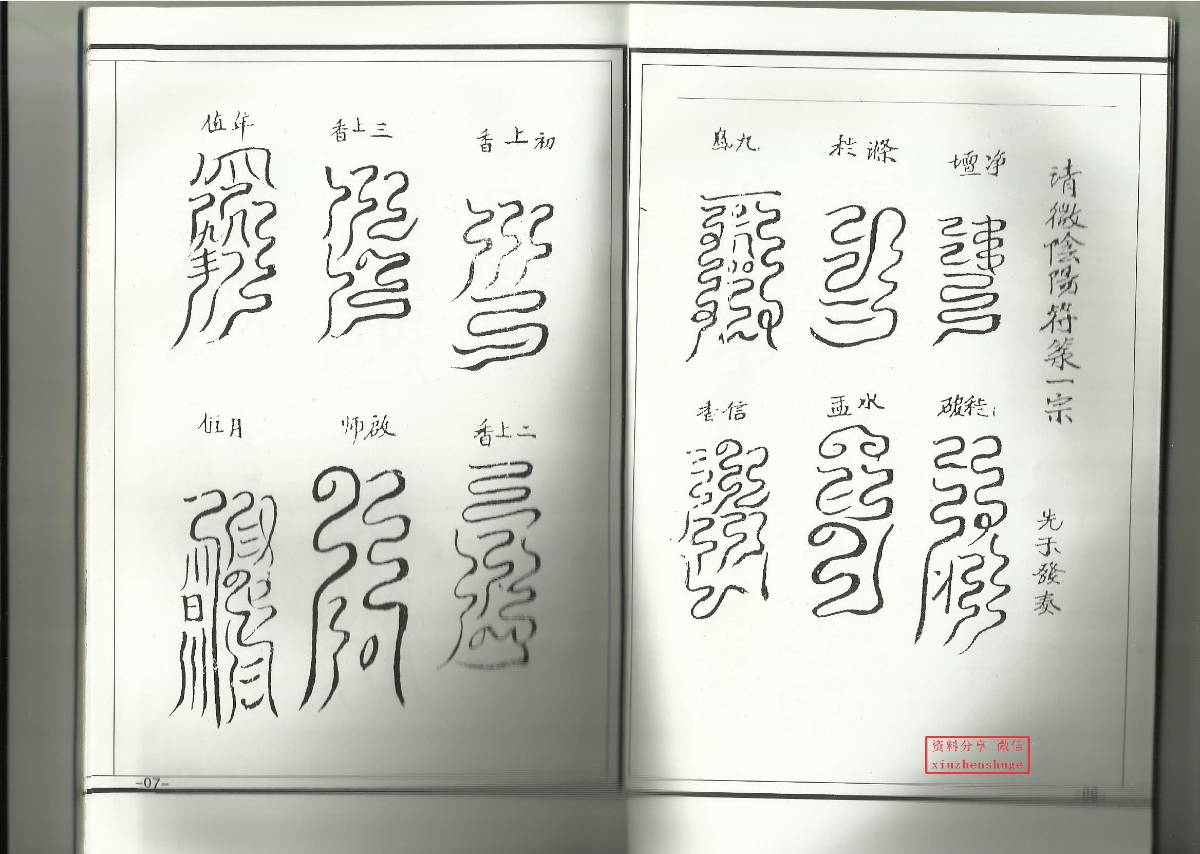 清微陰陽符箓一宗
先于發奏
净壇
破秽
滌秽
水盂
九鳳
信香
初上香
二上香
三上香
啟师
年值
月值
-07-
资料分享 微信
xiuzhenshuge